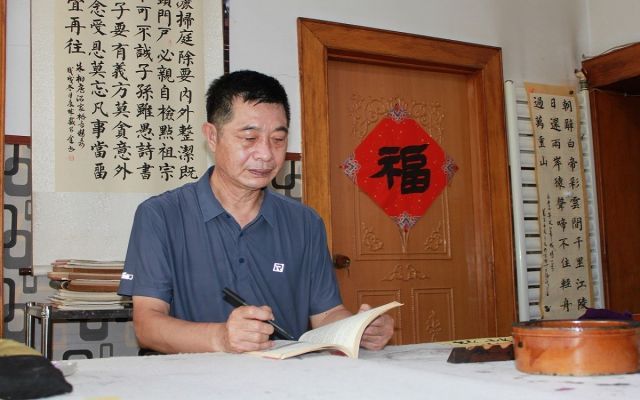 灑掃庭除要內外整潔既
鎖門戶必親自檢點祖宗
不可不誠子孫雖愚詩書
子要有義方莫貪意外
念受恩莫忘凡事當留
宜再往
福
朝辭白帝彩雲間千里江陵
日還兩岸猿聲啼不住輕舟
過萬重山